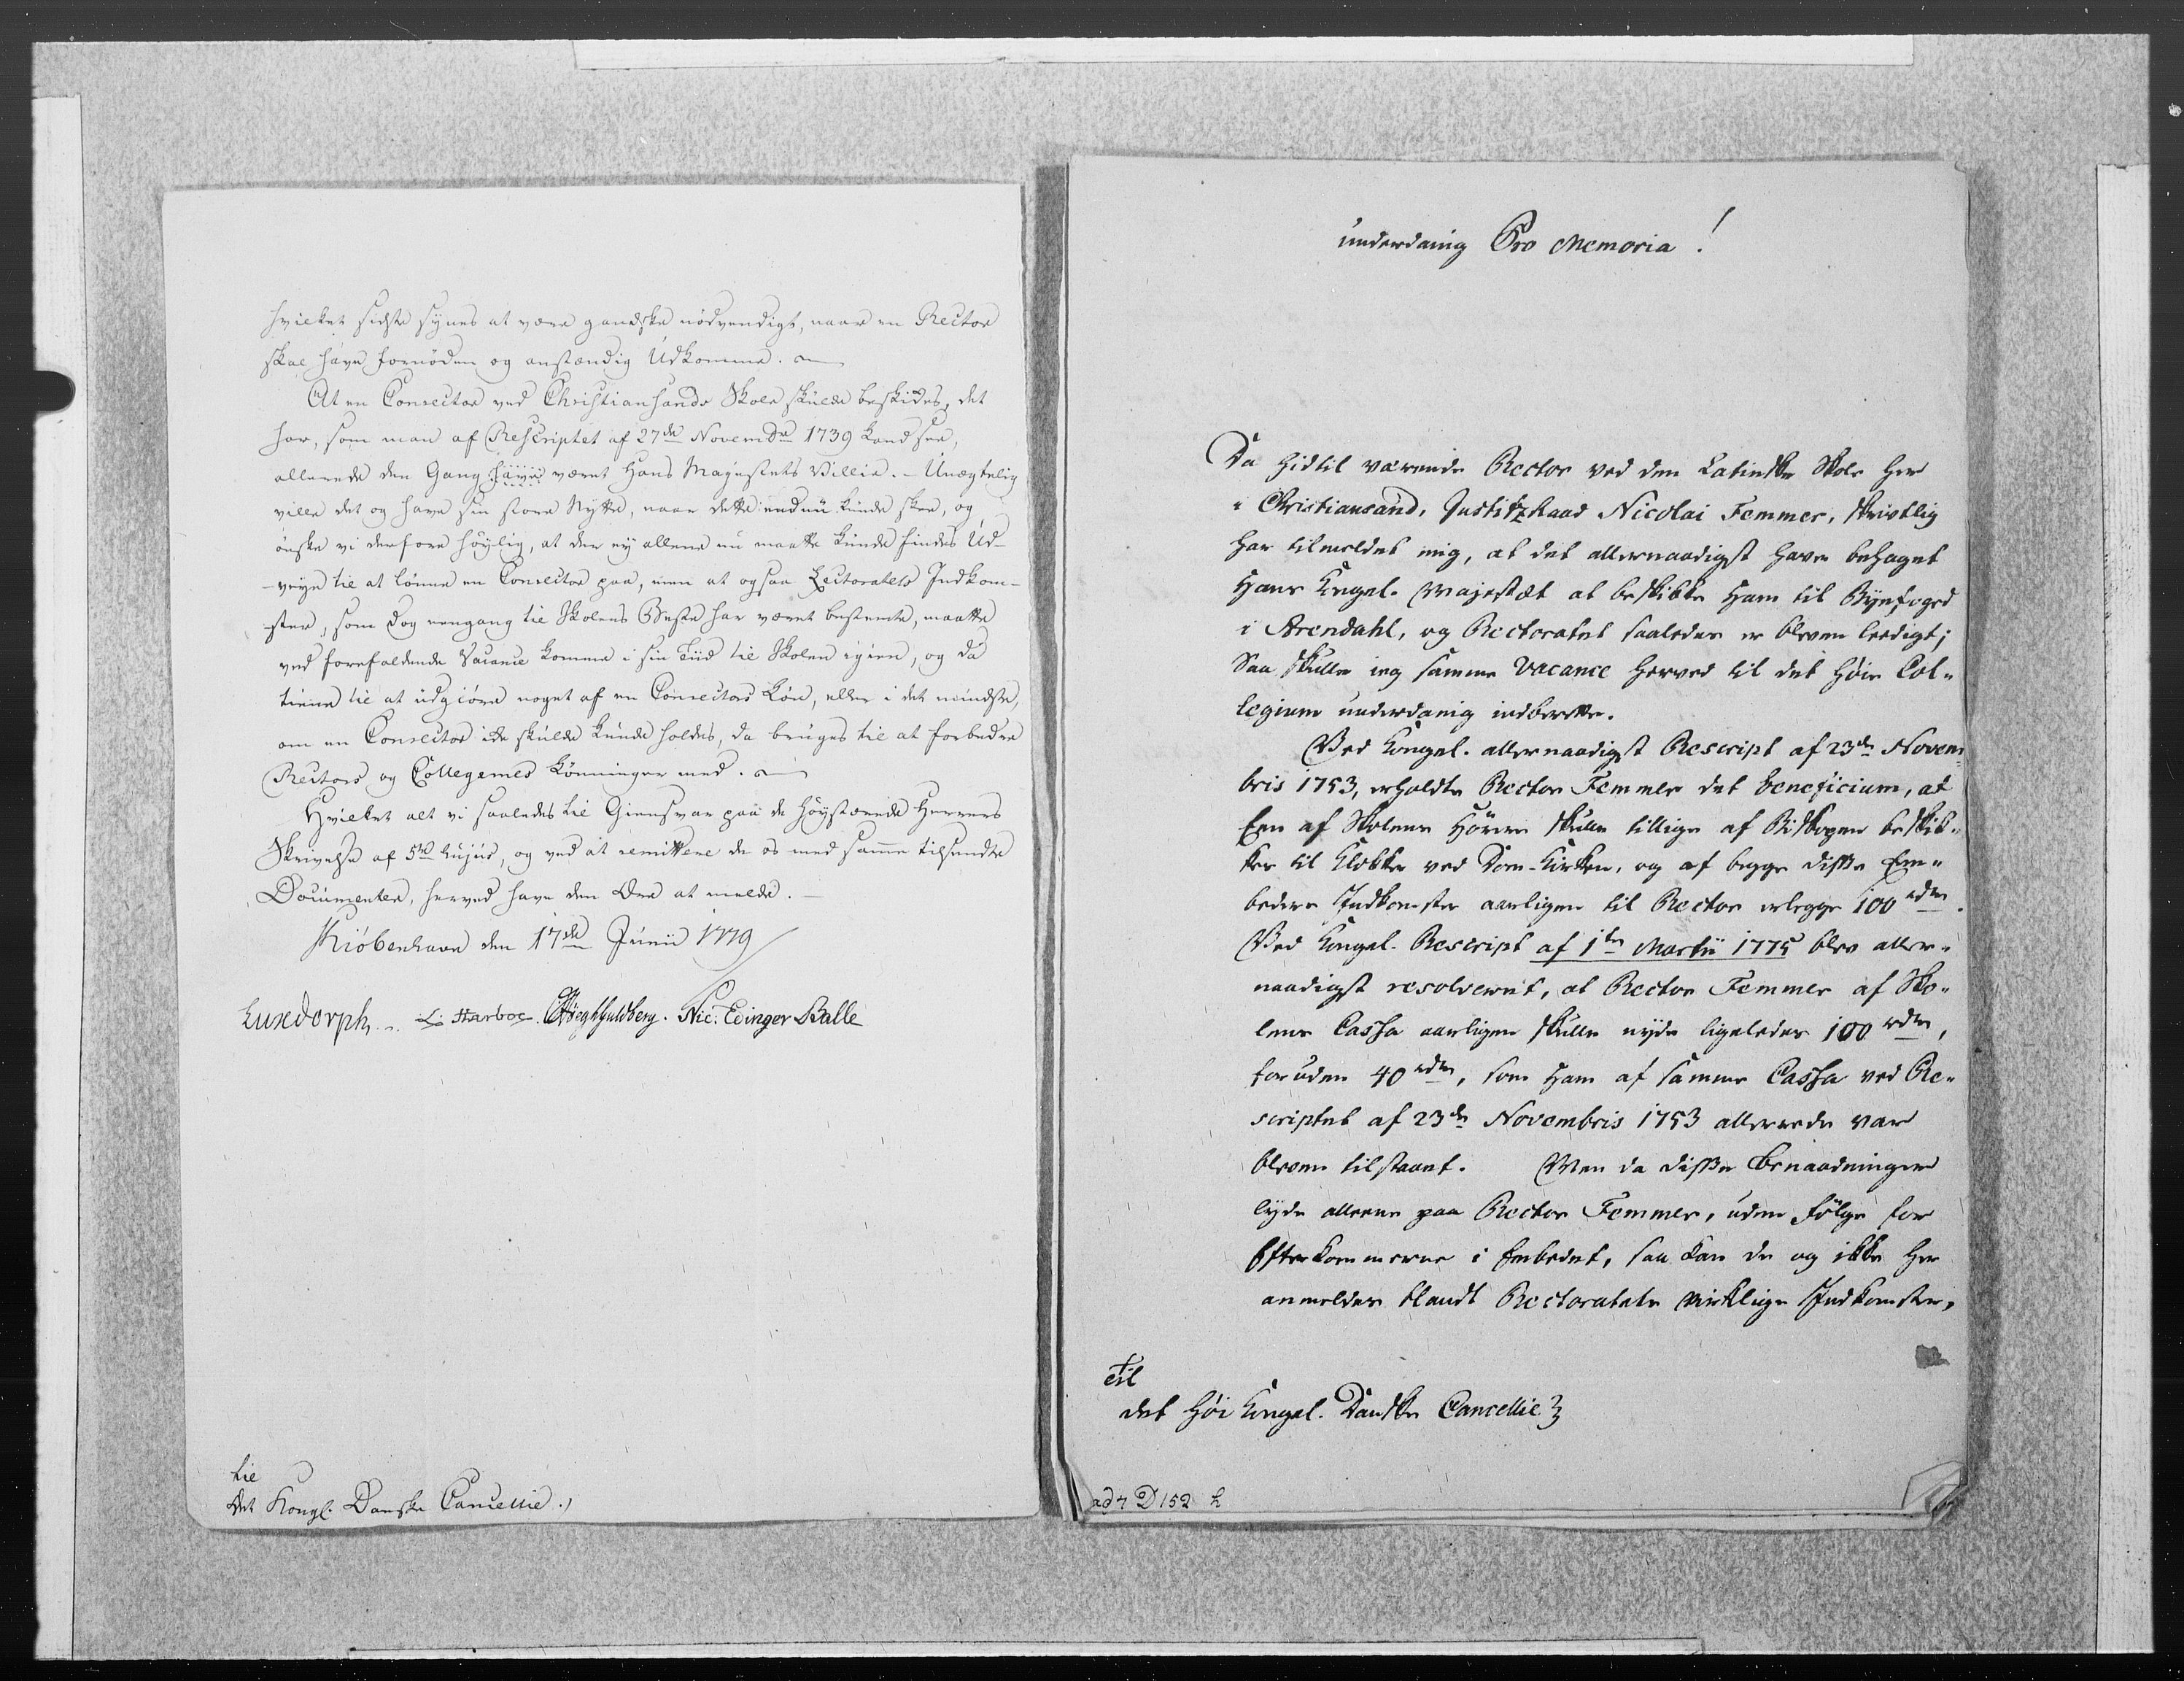 hvilket sidste synes at være gandske nödvendigt, naar en Rector
skal have fornöden og anstændig Udkomme.
At en Conrector ved Christiansands Skole skulde beskikkes, det
har, som man af Rescriptet af 27de Novembr 1739 kand see,
allerede den Gang havt været Hans Majestets Villie. - Unægtelig
ville det og have sin store Nytte, naar dette endnu kunde skee, og
önske vi derfore höylig, at der ey allene nu maatte kunde findes Ud-
-veye til at lönne en Conrector paa, men at ogsaa Lectoratets Indkom-
ster, som dog eengang til Skolens Beste har været bestemte, maatte
ved forefaldende Vacance komme i sin Tiid til Skolen igien, og da
tiene til at udgiöre noget af en Conrectors Lön, eller i det mindste,
om en Conrector icke skulde kunde holdes, da bruges til at forbedre
Rectors og Collegernes Lönninger med.
Hvilket alt vi saaledes til Giensvar paa de Höystærede Herrers
Skrivelse af 5te hujus, og ved at remittere de os med samme tilsendte
Documenter, herved have den Ære at melde. -
Kiöbenhavn den 17de Junii 1779
Luxdorph. L: Harboe. OHöeghGuldberg. Nic: Edinger Balle
til
Det Kongl. Danske Cancellie.
underdanig Pro Memoria!
Da hidtil værende Rector ved den Latinske Skole her
i Christiansand, Justitzraad Nicolai Femmer, skriftlig
har tilmeldet mig, at det allernaadigst have behaget
Hans Kongel. Majestæt at beskikke Ham til Byefoged
i Arendahl, og Rectoratet saaledes er bleven leedigt;
Saa skulle ieg samme Vacance herved til det Höie Col-
legium underdanig indberette.
Ved Kongel. allernaadigst Rescript af 23de Novem-
bris 1753, erholdte Rector Femmer det beneficium, at
Een af Skolens Hörere skulle tillige af Biskopen beskik-
kes til Klokker ved Dom-Kirken, og af begge disse Em-
beders Indkomster aarligen til Rector erlegge 100 rdlr.
Ved Kongel. Rescript af 1ten Martii 1775 blev aller-
naadigst resolveret, at Rector Femmer af Sko-
lens Cassa aarligen skulle nyde ligeledes 100 rdlr,
foruden 40 rdlr, som Ham af samme Cassa ved Re-
scriptet af 23de Novembris 1753 allerede var
bleven tilstaaet. Men da disse Benaadninger
lyde alleene paa Rector Femmer, uden fölge for
Efterkommerne i Embedet, saa kan de og ikke her
anmeldes blandt Rectoratets virklige Indkomster,
Til
det Höi Kongel. Danske Cancellie
ad 7 D152